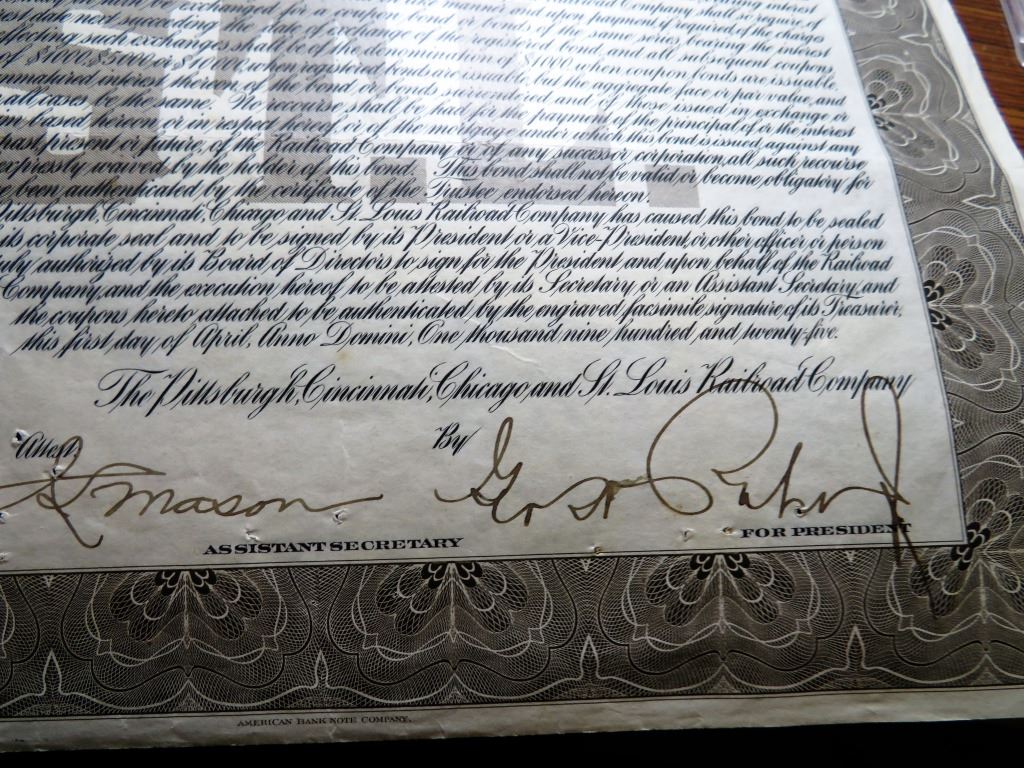 must be exchanged for a coupon bond or bonds
next succeeding the date of exchange of the registered bond, and all subsequent coupons
effecting such exchanges shall be of the denomination of $1000, when coupon bonds are issuable,
of $1000, $5000 or $10,000, when registered bonds are issuable, but the aggregate face or par value, and
unmatured interest thereon of the bond, or bonds surrendered and of those issued in exchange or
all cases be the same. No recourse shall be had for the payment of the principal of or the interest
based hereon, or in respect hereof, or of the mortgage under which this bond is issued, against any
past, present or future, of the Railroad Company or of any successor corporation, all such recourse
by the holder of this bond. This bond shall not be valid or become obligatory for
been authenticated by the certificate of the Trustee, endorsed hereon.
Pittsburgh, Cincinnati, Chicago and St. Louis Railroad Company has caused this bond to be sealed
its corporate seal and to be signed by its President or a Vice-President, or other officer or person
duly authorized by its Board of Directors to sign for the President and upon behalf of the Railroad
Company, and the execution hereof to be attested by its Secretary or an Assistant Secretary, and
the coupons hereto attached to be authenticated by the engraved facsimile signature of its Treasurer,
this first day of April, Anno Domini, One thousand nine hundred and twenty-five.
The Pittsburgh, Cincinnati, Chicago and St. Louis Railroad Company
Attest, By
Mason
ASSISTANT SECRETARY FOR PRESIDENT
AMERICAN BANK NOTE COMPANY.